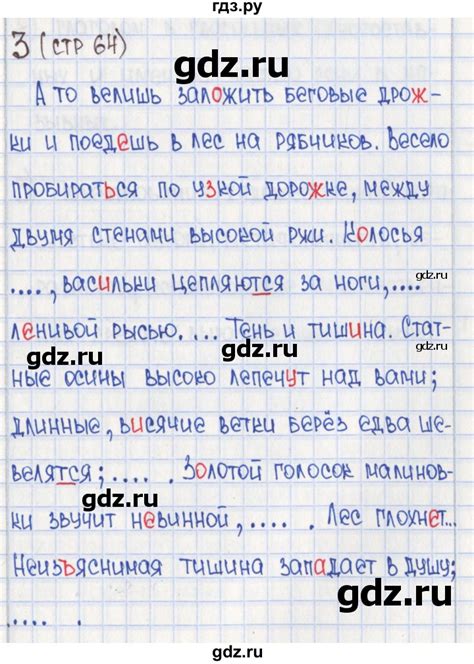 гдз.ру
3 (стр 64)
А то велишь заложить беговые дрож-
gdz.ru
ки и поедешь в лес на рябчиков. Весело
пробираться по узкой дорожке, между
двумя стенами высокой ржи. Колосья
gdz.ru
...., васильки цепляются за ноги,....
ленивой рысью. ... Тень и тишина. Стат-
gdz.ru
ные осины высоко лепечут над вами;
длинные, висячие ветки берёз едва ше-
велятся; .... . Золотой голосок малинов-
gdz.ru
ки звучит невинной, .... . Лес глохнет...
Неизъяснимая тишина западает в душу;
gdz.ru
.... .
gdz.ru
gdz.ru